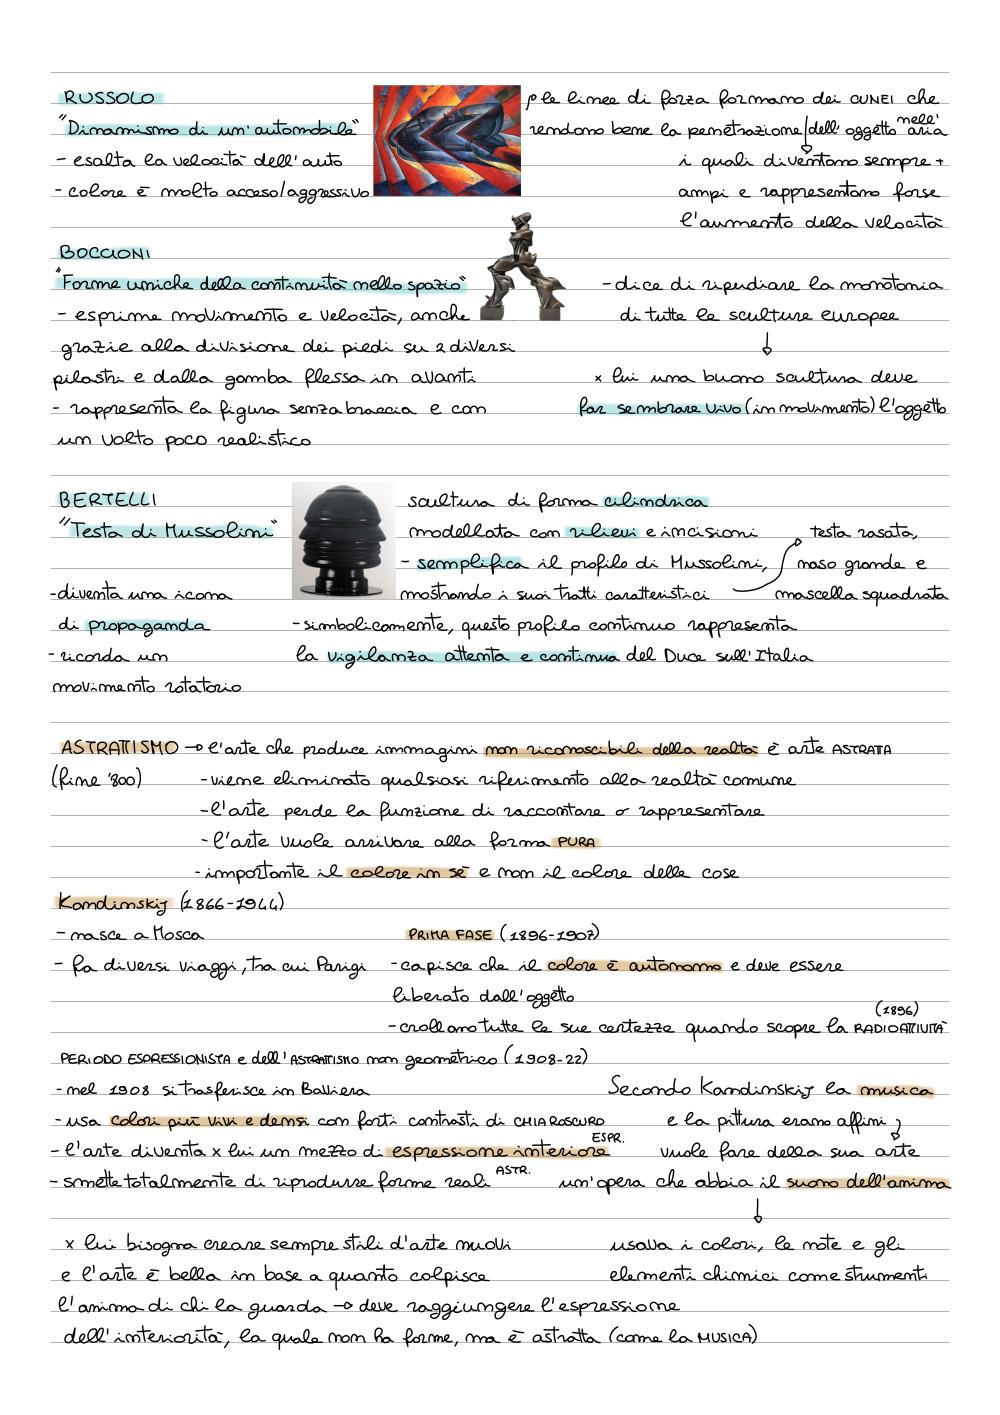 RUSSOLO
"Dinamismo di un'automobile"
- esalta la velocità dell'auto
- colore è molto acceso/aggressivo
le linee di forza formano dei CUNEI che
rendono bene la penetrazione dell'oggetto nell'aria
i quali diventano sempre +
ampi e rappresentano forse
l'aumento della velocità
BOCCIONI
"Forme uniche della continuità nello spazio"
- esprime movimento e velocità, anche
grazie alla divisione dei piedi su 2 diversi
pilastri e dalla gamba flessa in avanti
- rappresenta la figura senza braccia e con
un volto poco realistico
- dice di ripudiare la monotonia
di tutte le sculture europee
x lui una buona scultura deve
far sembrare vivo (in movimento) l'oggetto
BERTELLI
"Testa di Mussolini"
- diventa una icona
di propaganda
- ricorda un
movimento rotatorio
scultura di forma cilindrica
modellata con rilievi e incisioni
- semplifica il profilo di Mussolini,
mostrando i suoi tratti caratteristici
testa rasata,
naso grande e
mascella squadrata
- simbolicamente, questo profilo continuo rappresenta
la vigilanza attenta e continua del Duce sull'Italia
ASTRATTISMO → l'arte che produce immagini non riconoscibili della realtà è arte ASTRATTA
(fine '800)
- viene eliminato qualsiasi riferimento alla realtà comune
- l'arte perde la funzione di raccontare o rappresentare
- l'arte vuole arrivare alla forma PURA
- importante il colore in sé e non il colore delle cose
Kandinskij (1866-1944)
- nasce a Mosca
- fa diversi viaggi, tra cui Parigi
PRIMA FASE (1896-1907)
- capisce che il colore è autonomo e deve essere
liberato dall'oggetto
- crollano tutte le sue certezze quando scopre la RADIOATTIVITÀ (1896)
PERIODO ESPRESSIONISTA e dell'ASTRATTISMO non geometrico (1908-22)
- nel 1908 si trasferisce in Baviera
- usa colori più vivi e densi con forti contrasti di CHIAROSCURO
- l'arte diventa x lui un mezzo di espressione interiore ESPR.
- smette totalmente di riprodurre forme reali ASTR.
Secondo Kandinskij la musica
e la pittura erano affini
vuole fare della sua arte
un'opera che abbia il suono dell'anima
usava i colori, le note e gli
elementi chimici come strumenti
x lui bisogna creare sempre stili d'arte nuovi
e l'arte è bella in base a quanto colpisce
l'anima di chi la guarda → deve raggiungere l'espressione
dell'interiorità, la quale non ha forme, ma è astratta (come la MUSICA)